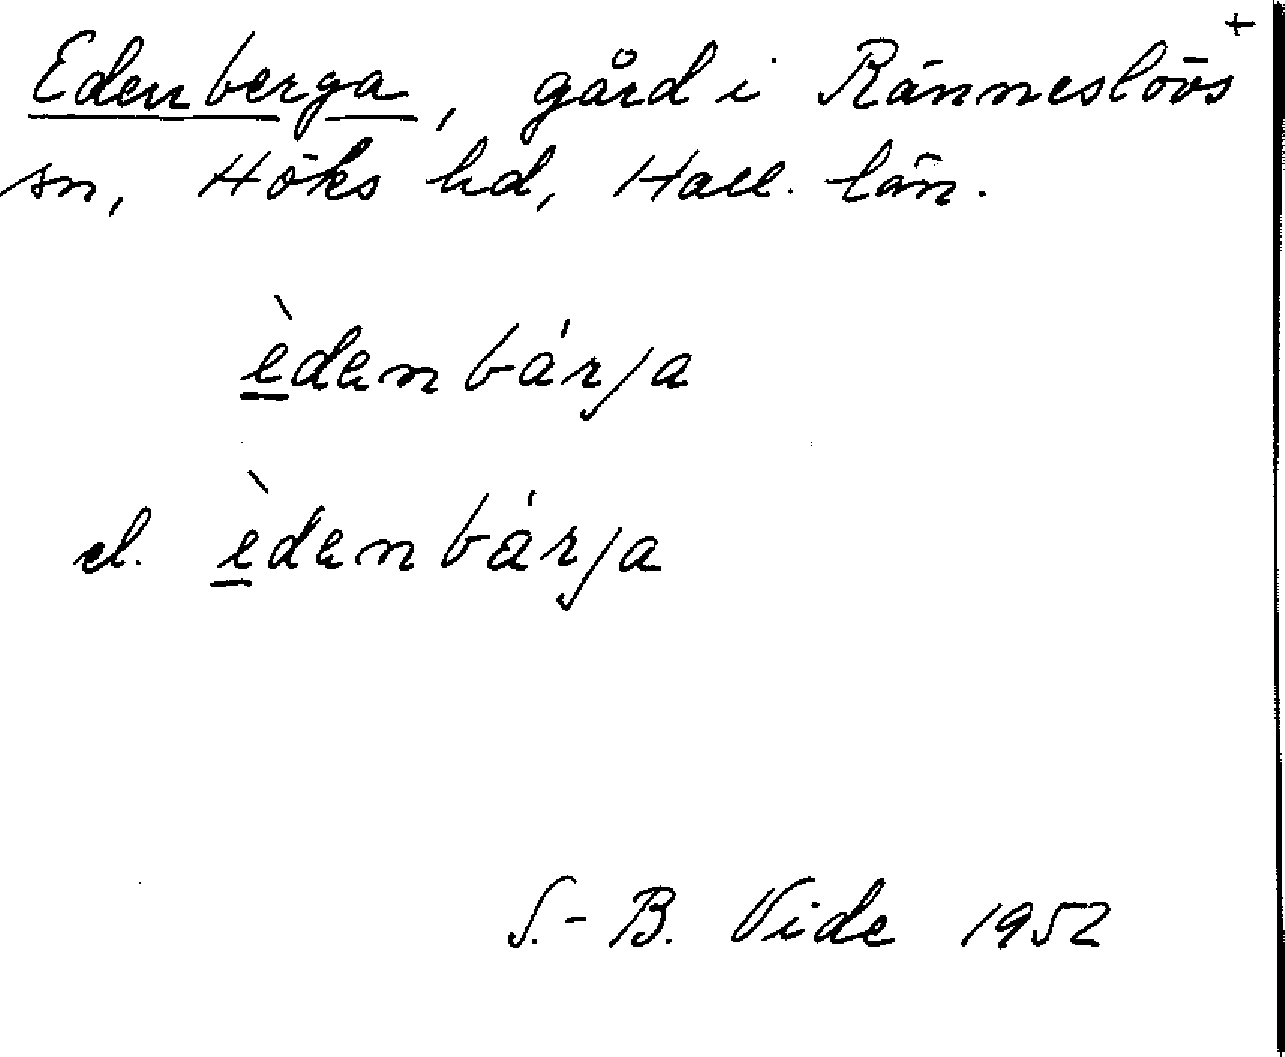 Edenberga, gård i Ränneslövs +
sn, Höks hd, Hall. län.
èdenbárja
el. èdenbárja
S.-B. Vide 1952